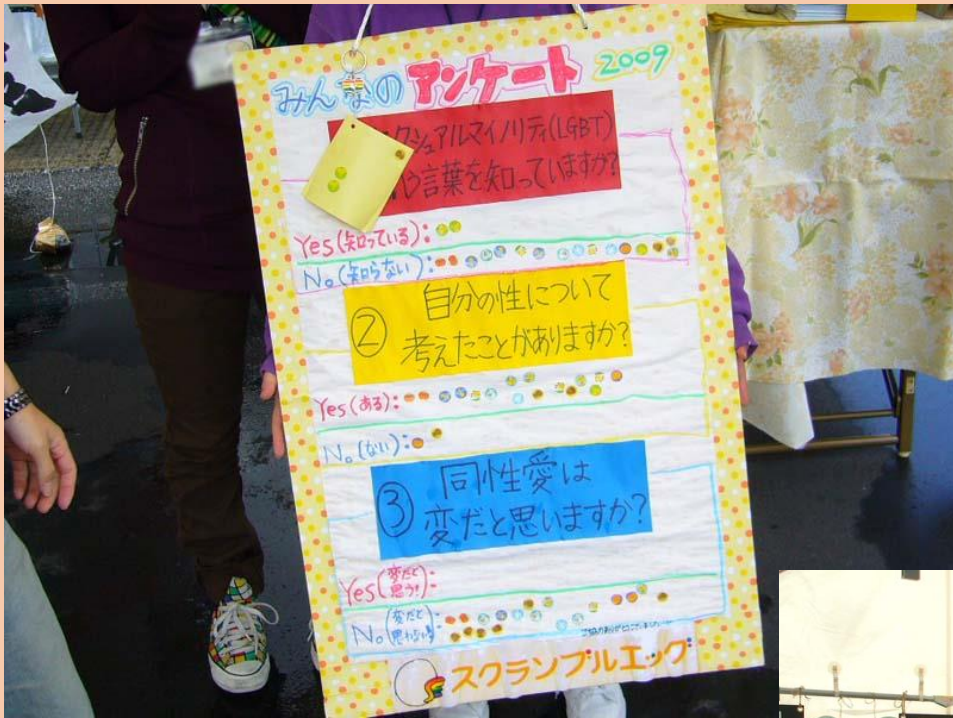 みんなのアンケート 2009
クシュアルマイノリティ(LGBT)
言葉を知っていますか?
Yes(知っている):
No(知らない):
② 自分の性について
考えたことがありますか?
Yes(ある):
No(ない):
③ 同性愛は
変だと思いますか?
Yes(変だと思う):
No(変だと思わない):
スクランブルエッグ